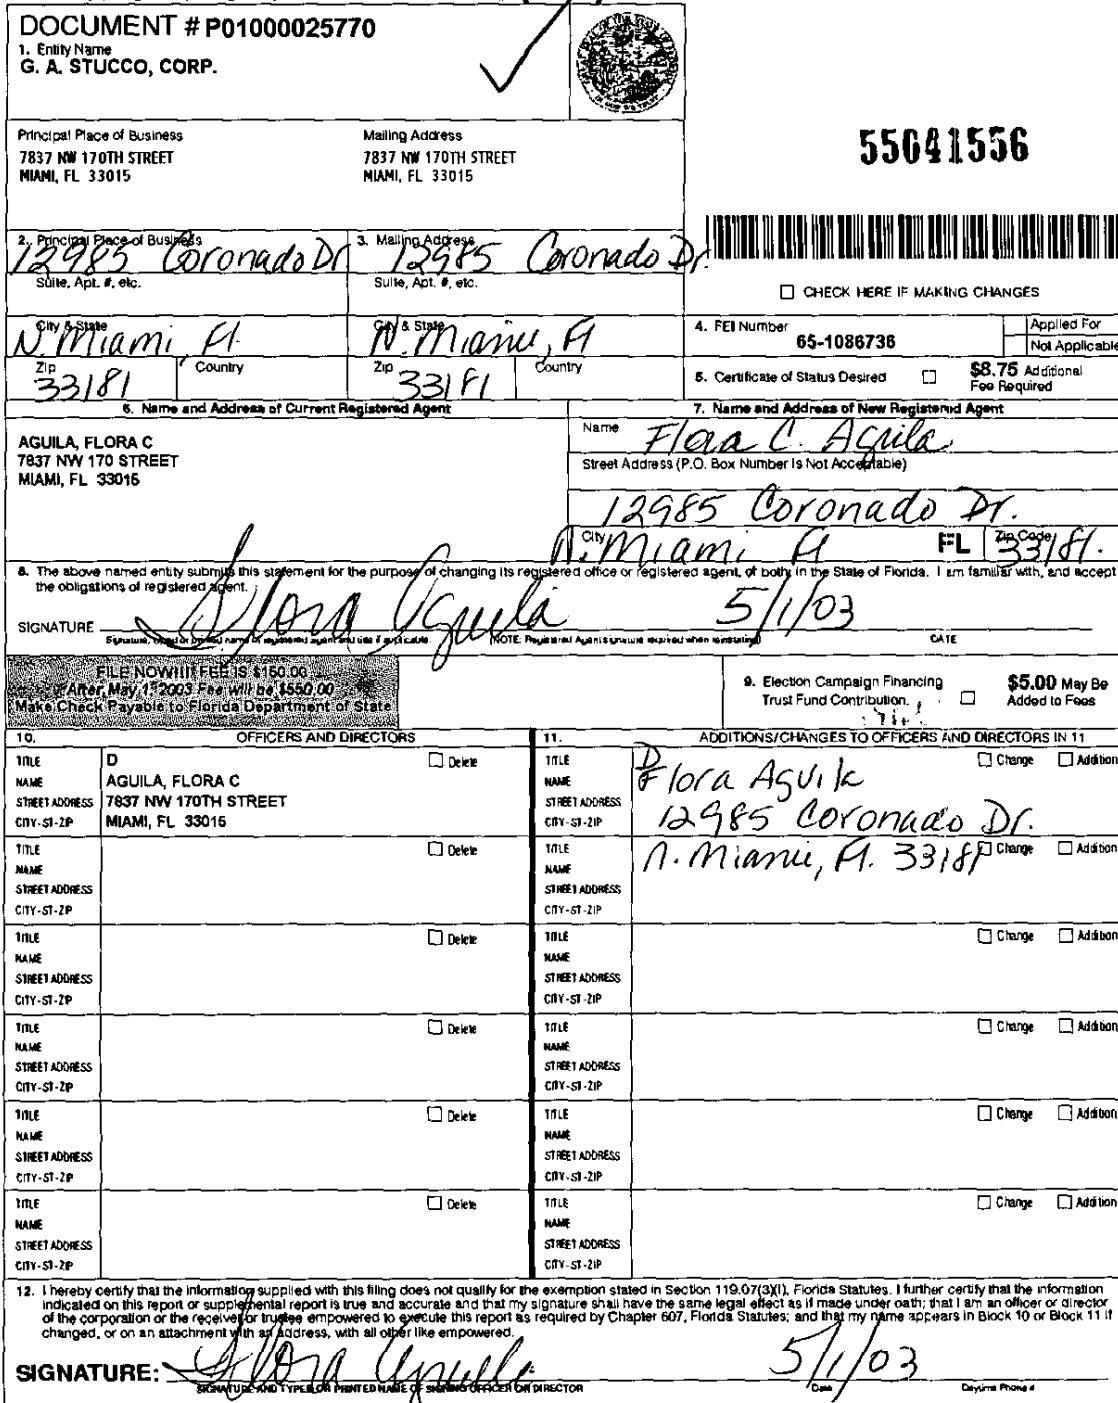 DOCUMENT # P01000025770
1. Entity Name
G. A. STUCCO, CORP.
Principal Place of Business
7837 NW 170TH STREET
MIAMI, FL 33015
Mailing Address
7837 NW 170TH STREET
MIAMI, FL 33015
55041556
2. Principal Place of Business
12985 Coronado Dr
3. Mailing Address
12985 Coronado Dr.
Suite, Apt. #, etc.
Suite, Apt. #, etc.
CHECK HERE IF MAKING CHANGES
City & State
N. Miami, Fl.
City & State
N. Miami, Fl
4. FEI Number
65-1086736
Applied For
Not Applicable
Zip
33181
Country
Zip
33181
Country
5. Certificate of Status Desired
$8.75 Additional
Fee Required
6. Name and Address of Current Registered Agent
AGUILA, FLORA C
7837 NW 170 STREET
MIAMI, FL 33015
7. Name and Address of New Registered Agent
Name Flora C. Aguila
Street Address (P.O. Box Number Is Not Acceptable)
12985 Coronado Dr.
City N. Miami Fl FL Zip Code 33181.
8. The above named entity submits this statement for the purpose of changing its registered office or registered agent, of both, in the State of Florida. I am familiar with, and accept
the obligations of registered agent.
SIGNATURE Flora Aguila 5/1/03
Signature, typed or printed name of registered agent and title if applicable. (NOTE: Registered Agent signature required when reinstating) DATE
FILE NOW!!! FEE IS $150.00
After May 1, 2003 Fee will be $550.00
Make Check Payable to Florida Department of State
9. Election Campaign Financing
Trust Fund Contribution.
$5.00 May Be
Added to Fees
10. OFFICERS AND DIRECTORS
11. ADDITIONS/CHANGES TO OFFICERS AND DIRECTORS IN 11
TITLE D Delete
NAME AGUILA, FLORA C
STREET ADDRESS 7837 NW 170TH STREET
CITY-ST-ZIP MIAMI, FL 33015
TITLE D Change Addition
NAME Flora Aguila
STREET ADDRESS
CITY-ST-ZIP 12985 Coronado Dr.
TITLE Delete
NAME
STREET ADDRESS
CITY-ST-ZIP
TITLE N. Miami, Fl. 33181 Change Addition
NAME
STREET ADDRESS
CITY-ST-ZIP
TITLE Delete
NAME
STREET ADDRESS
CITY-ST-ZIP
TITLE Change Addition
NAME
STREET ADDRESS
CITY-ST-ZIP
TITLE Delete
NAME
STREET ADDRESS
CITY-ST-ZIP
TITLE Change Addition
NAME
STREET ADDRESS
CITY-ST-ZIP
TITLE Delete
NAME
STREET ADDRESS
CITY-ST-ZIP
TITLE Change Addition
NAME
STREET ADDRESS
CITY-ST-ZIP
TITLE Delete
NAME
STREET ADDRESS
CITY-ST-ZIP
TITLE Change Addition
NAME
STREET ADDRESS
CITY-ST-ZIP
12. I hereby certify that the information supplied with this filing does not qualify for the exemption stated in Section 119.07(3)(i), Florida Statutes. I further certify that the information
indicated on this report or supplemental report is true and accurate and that my signature shall have the same legal effect as if made under oath; that I am an officer or director
of the corporation or the receiver or trustee empowered to execute this report as required by Chapter 607, Florida Statutes; and that my name appears in Block 10 or Block 11 if
changed, or on an attachment with an address, with all other like empowered.
SIGNATURE: Flora Aguila 5/1/03
SIGNATURE AND TYPED OR PRINTED NAME OF SIGNING OFFICER OR DIRECTOR Date Daytime Phone #